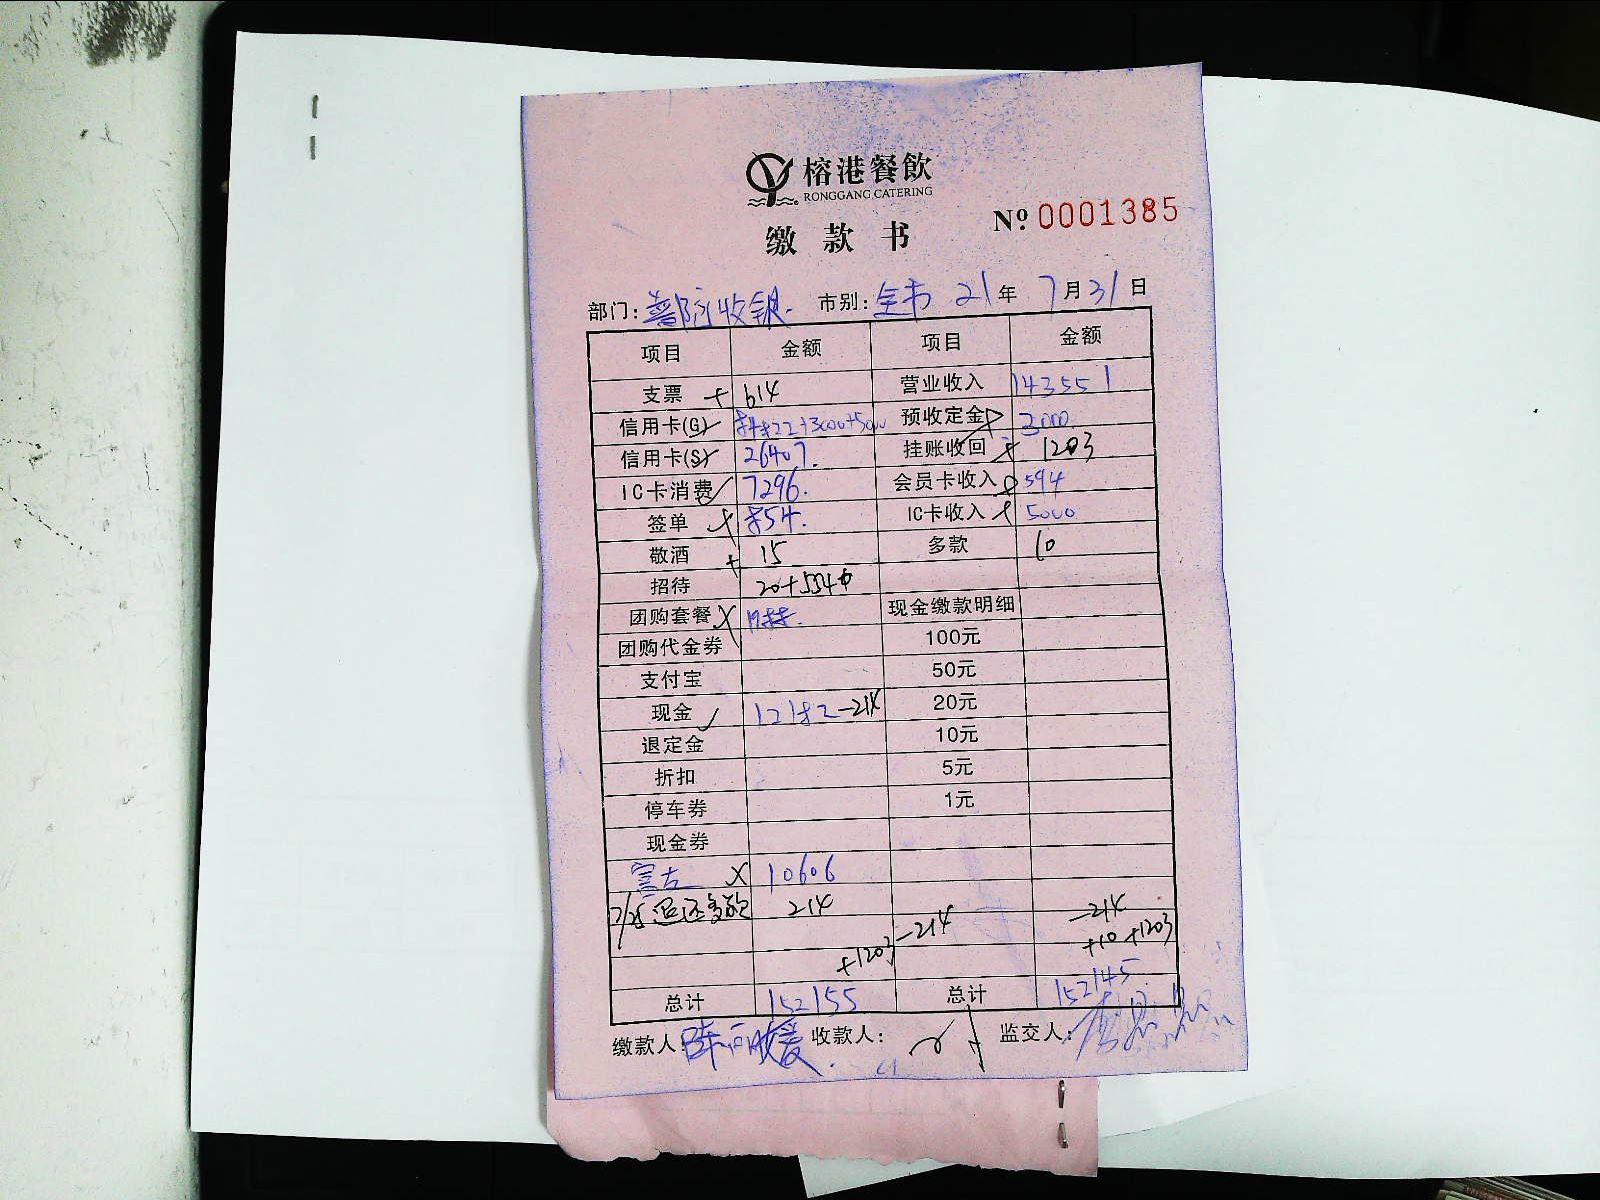 榕港餐飲
RONGGANG CATERING
缴款书
Nº 0001385
部门: 收银 市别: 全市 21年 7月31日
项目 金额 项目 金额
支票 + 614 营业收入 143551
信用卡(G) +3000+5000 预收定金 3000
信用卡(S) 26407. 挂账收回 + 1203
IC卡消费 7296. 会员卡收入 594
签单 854. IC卡收入 5000
敬酒 + 15 多款 10
招待 20+554
团购套餐 现金缴款明细
团购代金券 100元
支付宝 50元
现金 12182-214 20元
退定金 10元
折扣 5元
停车券 1元
现金券
10606
7/25退还多款 214 -214 -214
+1203 +10 +1203
总计 152155 总计 152145
缴款人: 收款人: 监交人: